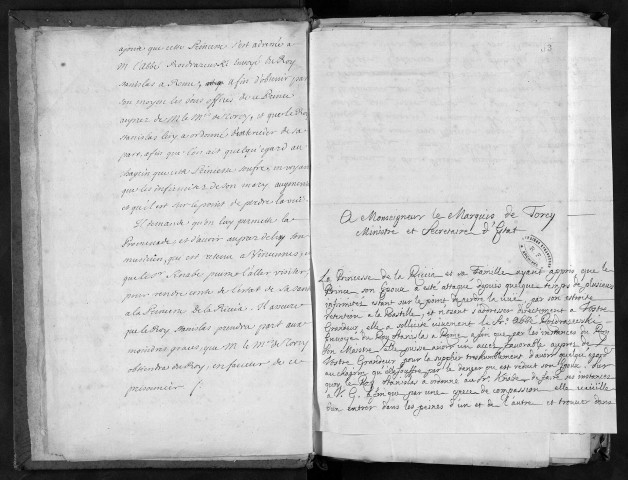 ajoute que cette Princesse s'est adressée à
M. l'abbé envoyé du Roy
Stanislas a Rome, afin d'obtenir par
son moyen les bons offices de ce Prince
auprez de M. le M.is de Torcy, et que le Roy
Stanislas luy a ordonné d'escrire de sa
part, afin que l'on ait quelqu'egard au
chagrin que cette Princesse souffre, en voyant
que les infirmitez de son mary augmentent
et qu'il est sur le point de perdre la vüe.
Il demande qu'on luy permette la
Promenade et d'avoir auprez de luy son
musicien, qui est retenu a Vincennes, et
que le S.r puisse l'aller visiter
pour rendre conte de l'estat de sa santé
a la Princesse de la Riccia. Il assure
que le Roy Stanislas prendra part aux
moindres graces, que M. le M.is de Torcy
obtiendra du Roy, en faveur de ce
prisonnier
113
A Monseigneur le Marquis de Torcy
Ministre et Secretaire d'Estat
La Princesse de la Riccia et sa Famille ayant appris que le
Prince son Epoux a esté attaqué depuis quelque temps de plusieurs
infirmités estant sur le point de perdre la vue, par son estroite
retention a la Bastille, et n'osant s'adresser directement a Vostre
Grandeur, elle a sollicité vivement le Sr. Abbé
Envoyé du Roy Stanislas a Rome, afin que par les instances du Roy
son Maistre elle puisse avoir un accès favorable auprès de
Vostre Grandeur pour la supplier treshumblement d'avoir quelque egard
au chagrin qu'elle souffre par le danger ou est reduit son Epoux. Sur
quoy le Roy Stanislas a ordonné au Sr. Abbé de faire ses instances
a V. G. afin que par une espece de compassion elle veuille
d'un entrer dans les peines d'un et de l'autre et trouver dans